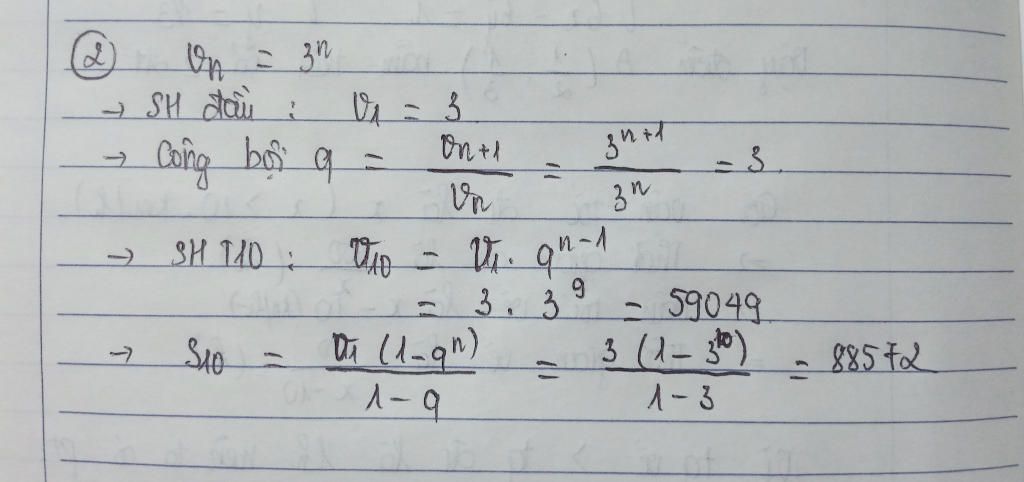 ② vn = 3^n
→ SH đầu : v1 = 3
→ Công bội q = vn+1 / vn = 3^(n+1) / 3^n = 3.
→ SH T10 : v10 = v1 . q^(n-1)
= 3 . 3^9 = 59049
→ S10 = v1 (1-q^n) / 1-q = 3 (1-3^10) / 1-3 = 88572